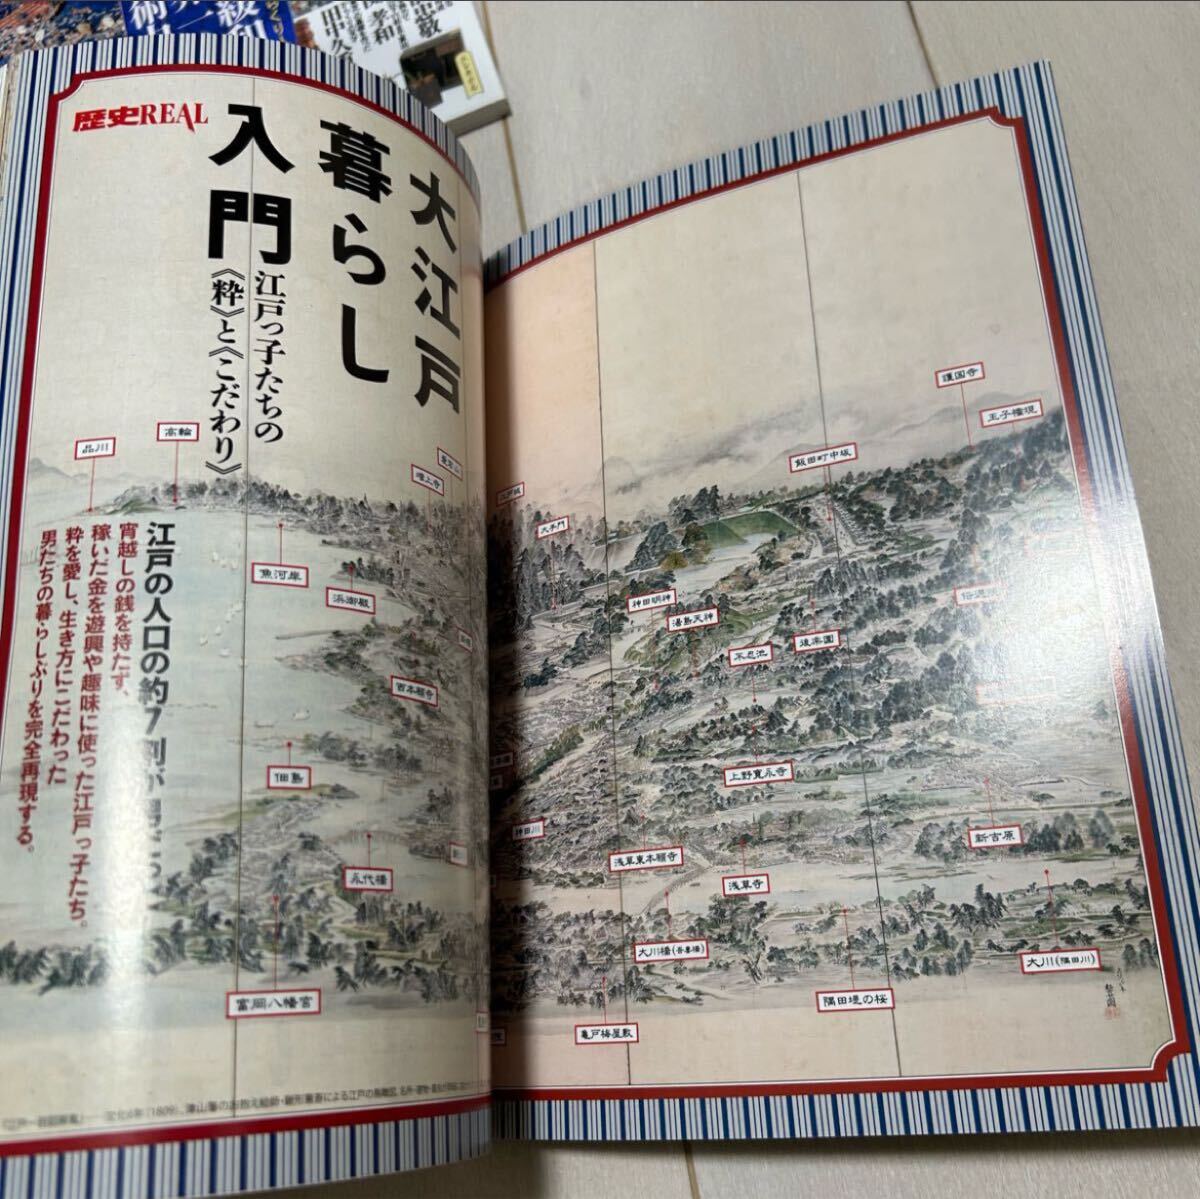 歴史REAL
大江戸
暮らし
入門
江戸っ子たちの
《粋》と《こだわり》
宵越しの銭を持たず、
稼いだ金を遊興や趣味に使った江戸っ子たち。
粋を愛し、生き方にこだわった
男たちの暮らしぶりを完全再現する。
品川
高輪
増上寺
魚河岸
浜御殿
西本願寺
佃島
永代橋
富岡八幡宮
江戸城
大手門
護国寺
王子権現
飯田町中坂
神田明神
湯島天神
後楽園
不忍池
上野寛永寺
神田川
浅草東本願寺
浅草寺
新吉原
大川橋(吾妻橋)
大川(隅田川)
隅田堤の桜
亀戸梅屋敷